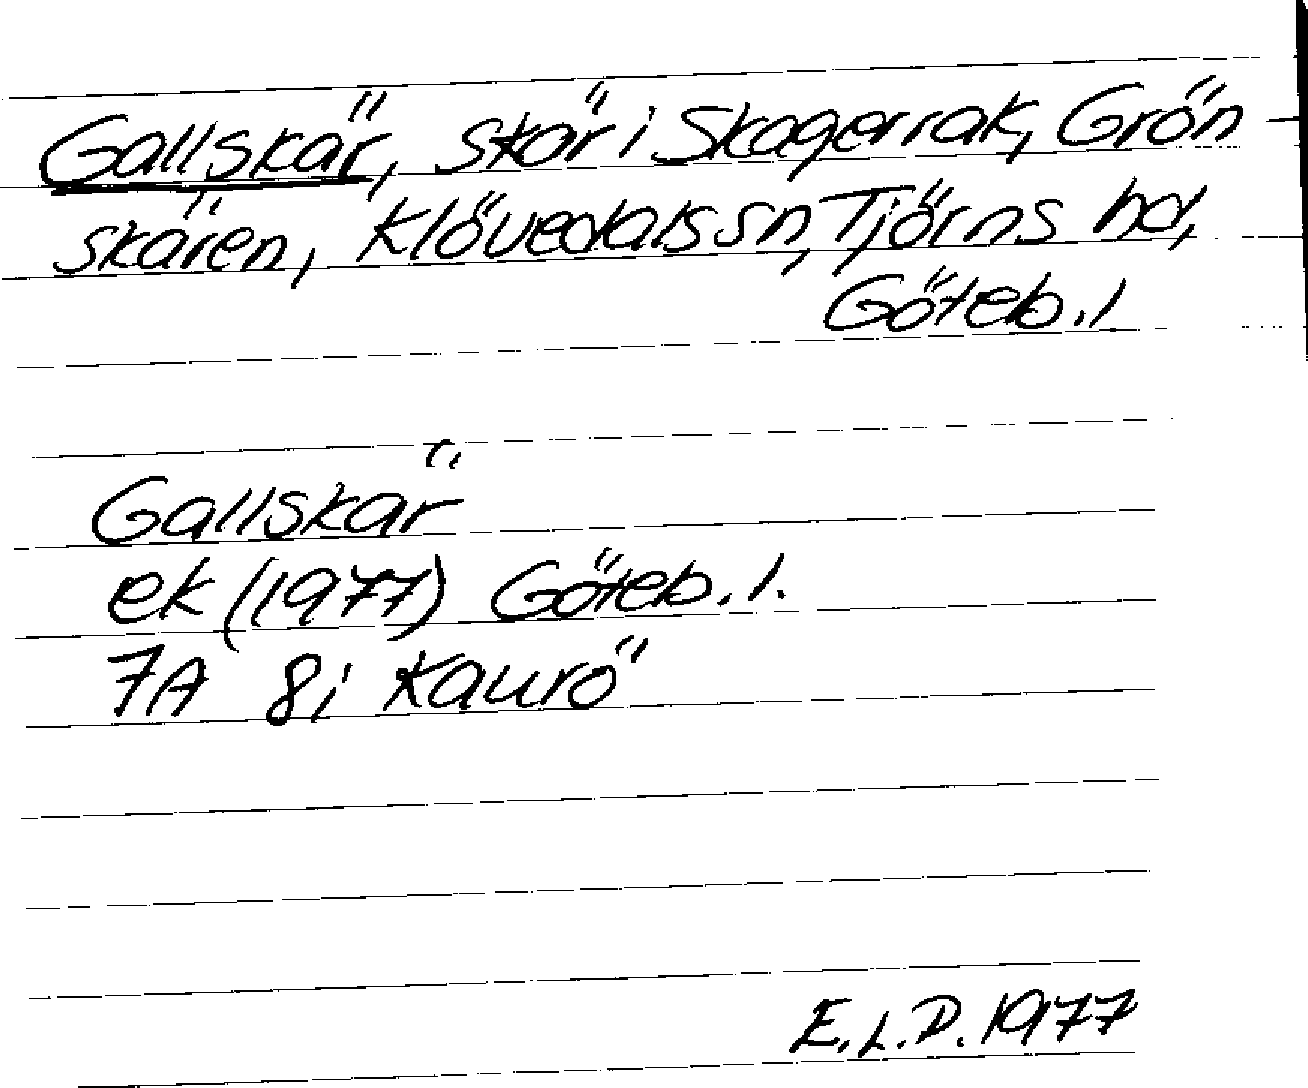 Gallskär, skär i Skagerrak, Grön
skären, Klövedals sn, Tjörns hd,
Göteb. l
Gallskär
ek (1977) Göteb. l.
7A 8i Kaurö
E.L.D. 1977